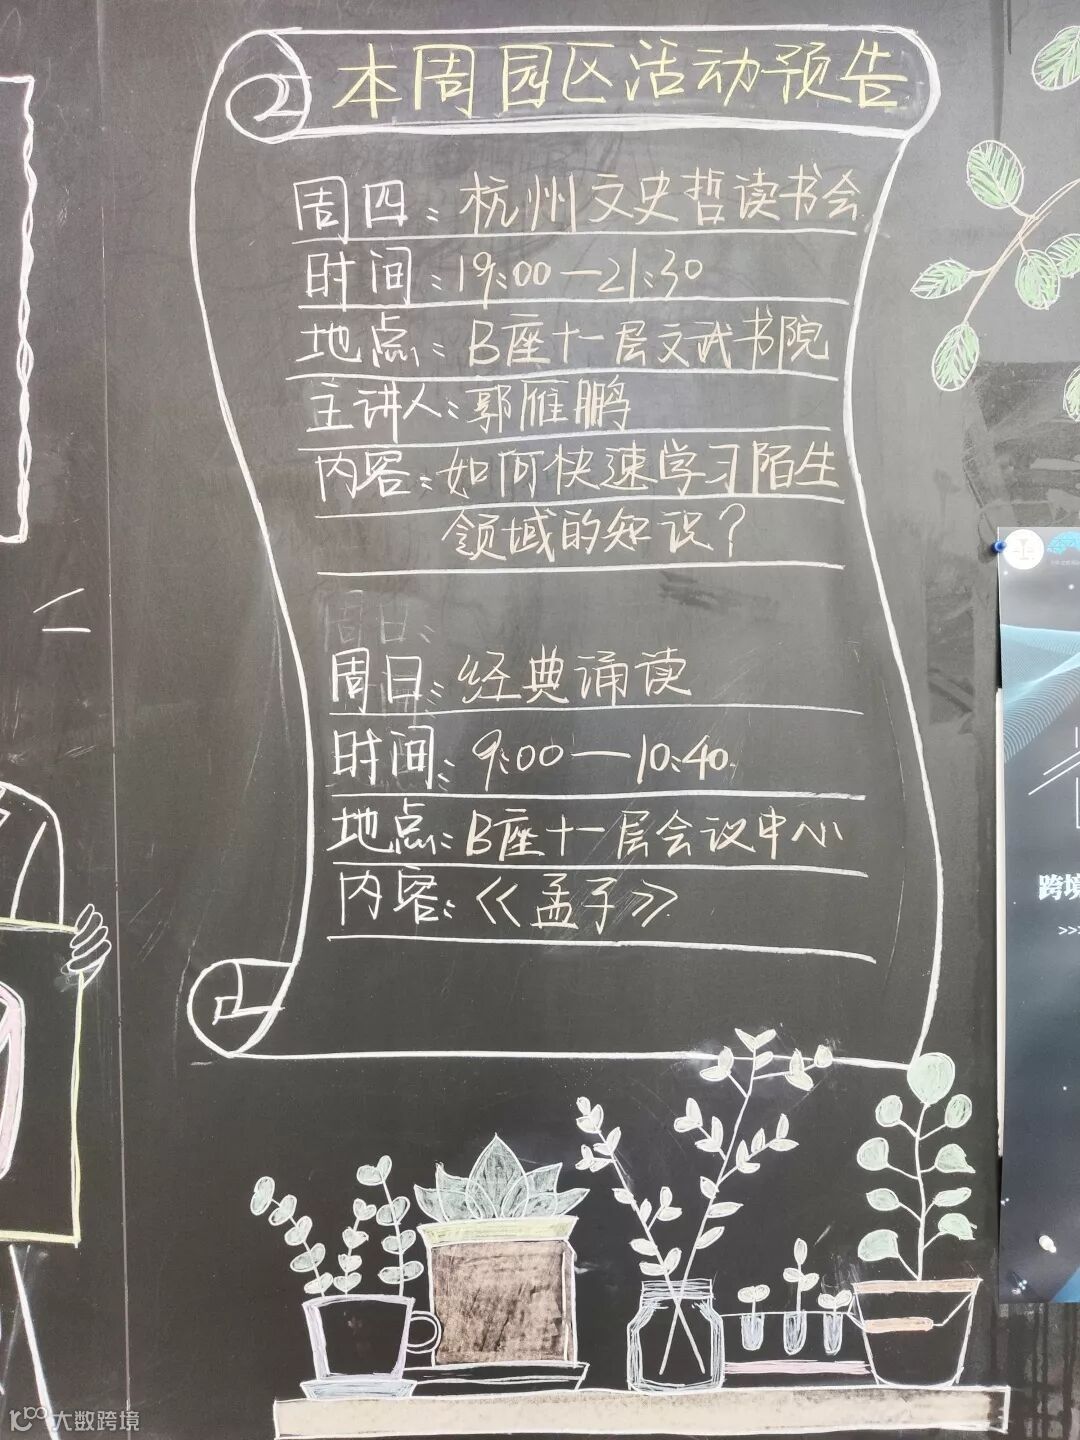 本周园区活动预告
周四：杭州文史哲读书会
时间：19:00—21:30
地点：B座十一层文武书院
主讲人：郭雁鹏
内容：如何快速学习陌生
领域的知识？
周日：
周日：经典诵读
时间：9:00—10:40
地点：B座十一层会议中心
内容：《孟子》
跨境
>>>
大数跨境